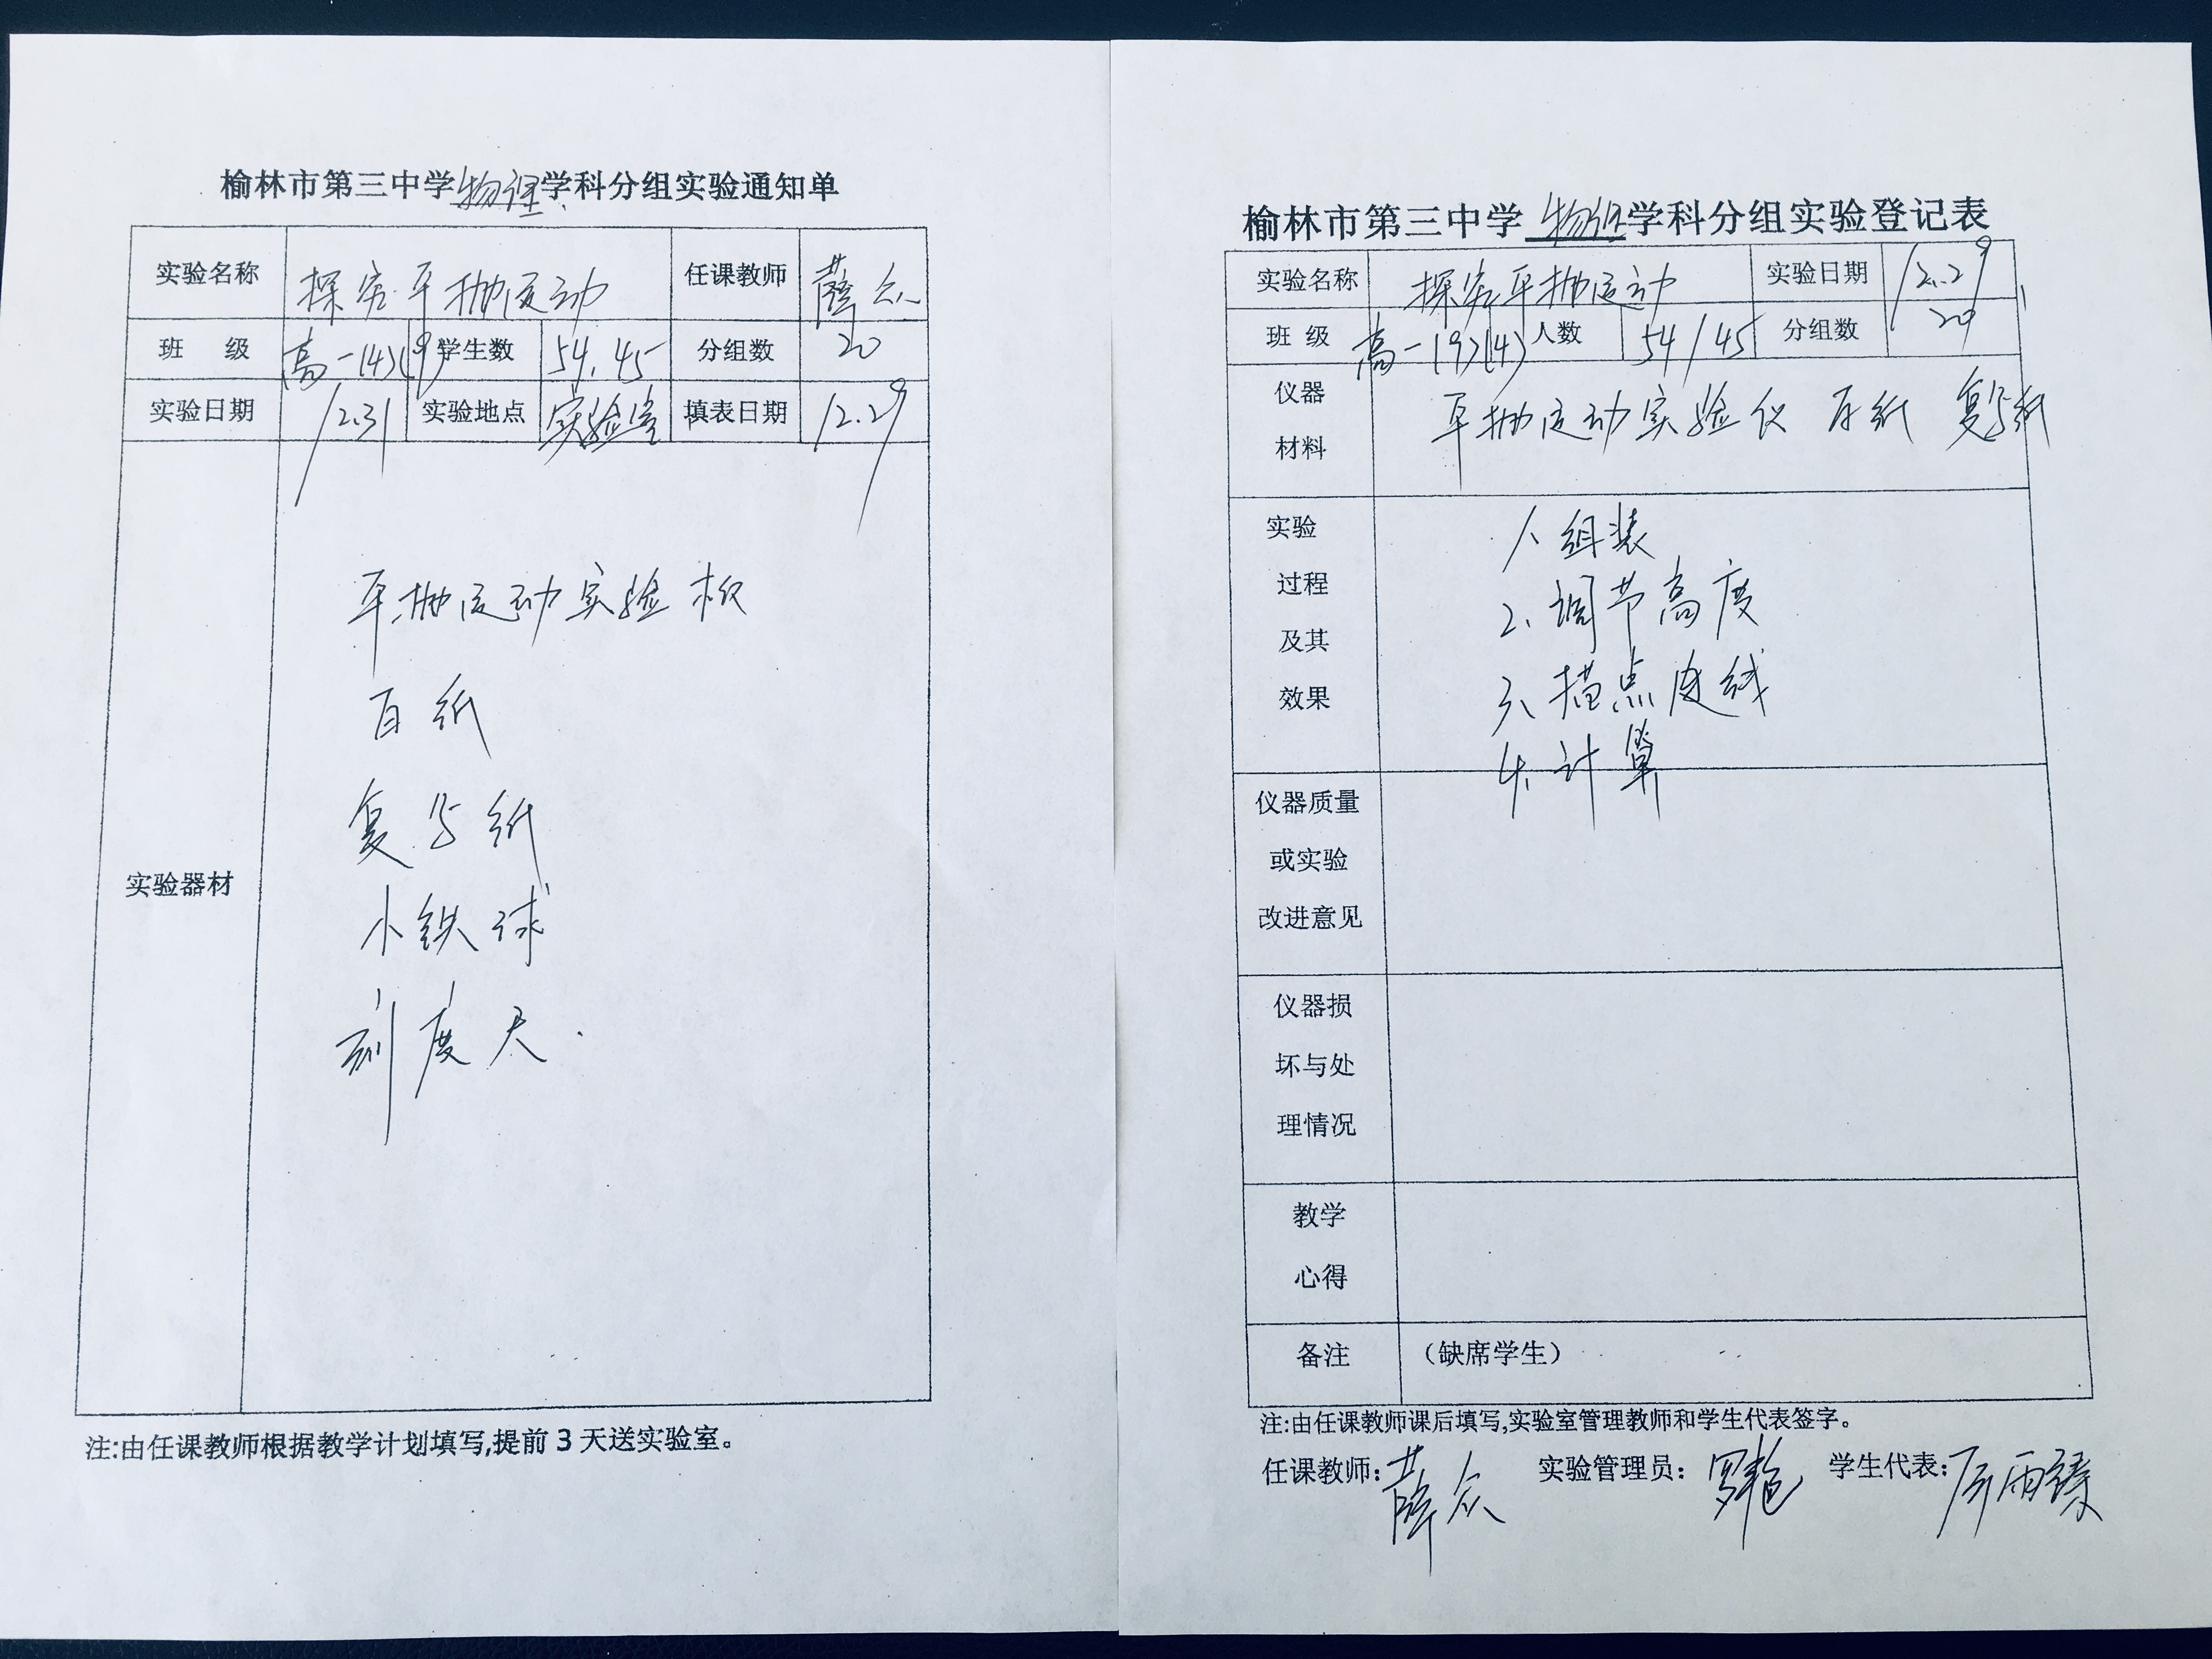 榆林市第三中学物理学科分组实验通知单
实验名称 探究平抛运动 任课教师 薛众
班 级 高一(4)(9) 学生数 54.45 分组数 20
实验日期 12.31 实验地点 实验室 填表日期 12.29
实验器材
平抛运动实验板
百纸
复写纸
小铁球
刻度尺.
注:由任课教师根据教学计划填写,提前3天送实验室。
榆林市第三中学物理学科分组实验登记表
实验名称 探究平抛运动 实验日期 12.29
班 级 高一(9)(4) 人数 54/45 分组数 20
仪器
材料
平抛运动实验仪 纸 复写纸
实验
过程
及其
效果
1、组装
2、调节高度
3、描点连线
4、计算
仪器质量
或实验
改进意见
仪器损
坏与处
理情况
教学
心得
备注 (缺席学生)
注:由任课教师课后填写,实验室管理教师和学生代表签字。
任课教师:薛众 实验管理员: 罗 学生代表: 雨臻